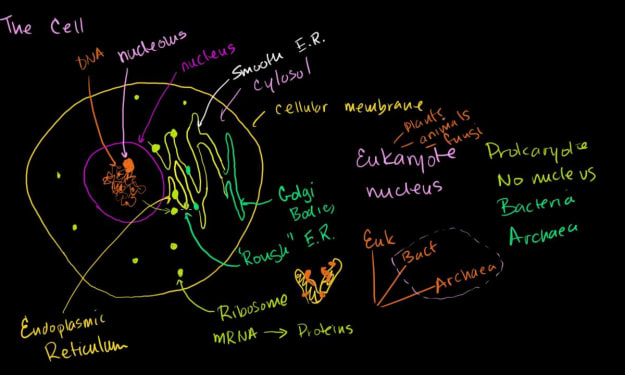 The Cell
DNA
nucleolus
nucleus
Smooth E.R.
cytosol
cellular membrane
Plants
animals
fungi
Eukaryote
nucleus
Prokaryote
No nucleus
Bacteria
Archaea
Golgi
Bodies
"Rough" E.R.
Euk
Bact
Archaea
Ribosome
mRNA → Proteins
Endoplasmic
Reticulum